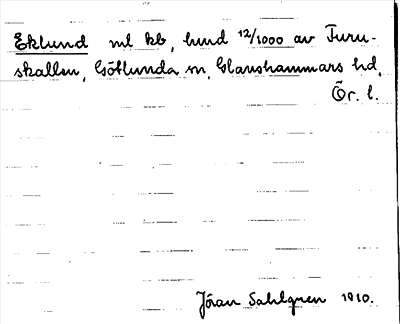 Eklund ml kb, hmd 12/1000 av Furu-
skallen, Götlunda sn, Glanshammars hd,
Ör. l.
Jöran Sahlgren 1910.